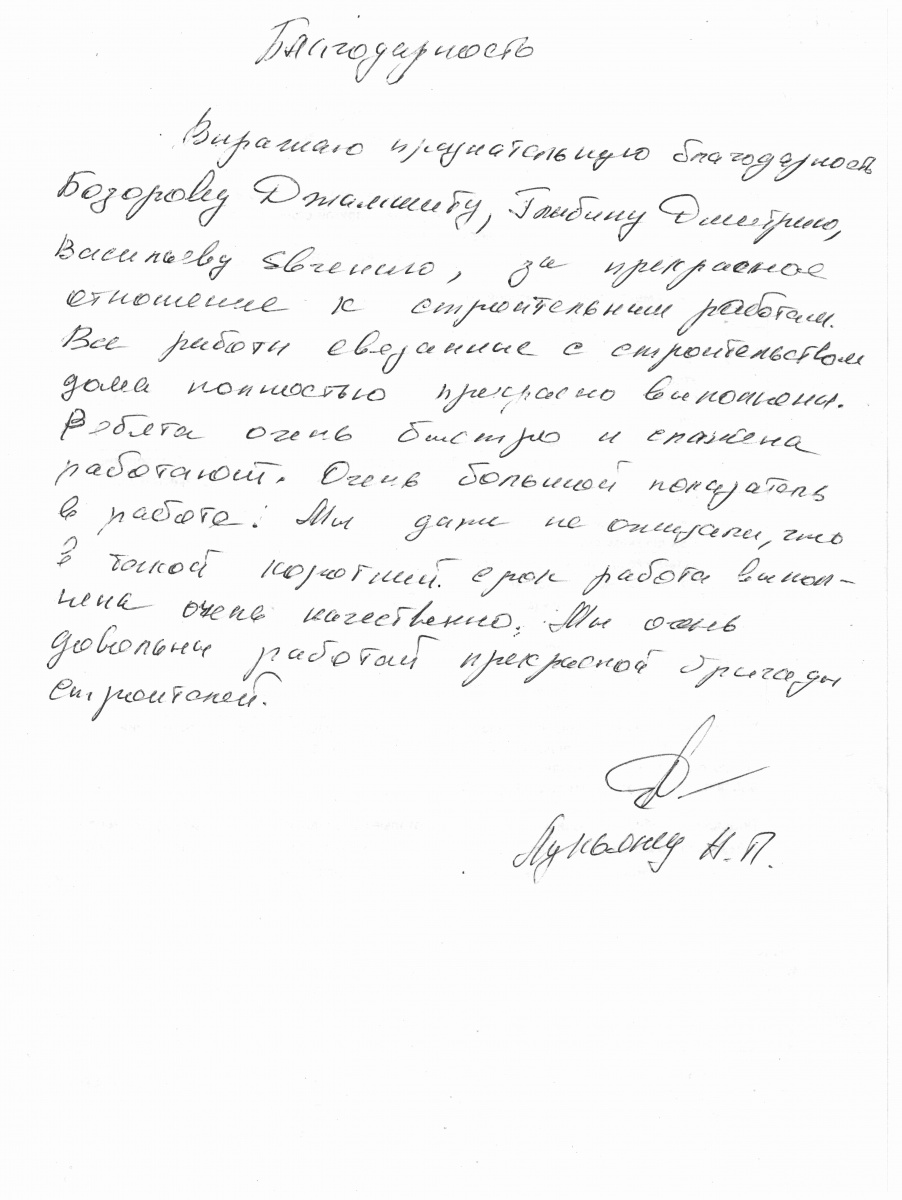 Благодарность
Виражаю признательную благодарность
Бозорову Джамшиту, Глибину Дмитрию,
Васильеву Евгению, за прекрасное
отношение к строительним работам.
Все работи свезанние с строительством
дома полностью прекрасно виполнени.
Ребята очень быстро и слажена
работают. Очень большой показатель
в работе! Ми даже не ожидали, что
в такой короткий срок работа випол-
нена очень качественно. Ми очень
довольни работай прекрасной бригады
строителей.
Лукьянец Н.П.